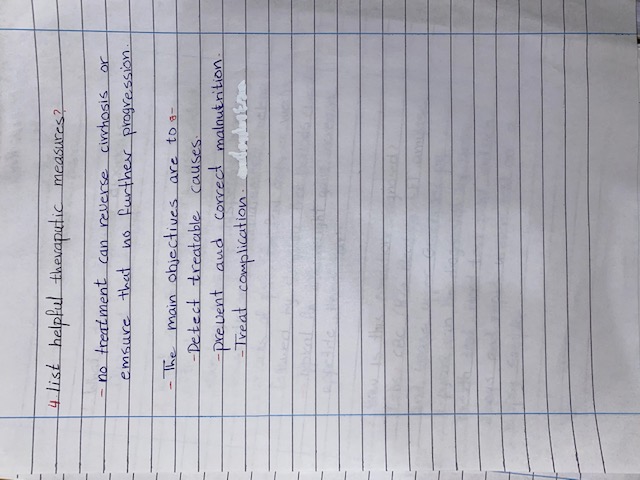 4. list helpful theraputic measures?
- no treatment can reverse cirrhosis or
emsure that no further progression.
- The main objectives are to :-
- Detect treatable causes.
- prevent and correct malnutrition.
- Treat complication.